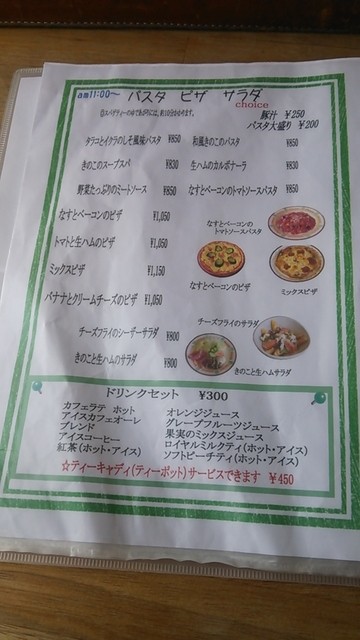 am11:00～ パスタ ピザ サラダ
choice
◎スパゲティーのゆであがりには、約10分かかります。
豚汁 ¥250
パスタ大盛り ¥200
タラコとイクラのしそ風味パスタ ¥850 和風きのこのパスタ ¥850
きのこのスープスパ ¥830 生ハムのカルボナーラ ¥830
野菜たっぷりのミートソース ¥850 なすとベーコンのトマトソースパスタ ¥850
なすとベーコンのピザ ¥1,050
トマトと生ハムのピザ ¥1,050
ミックスピザ ¥1,150
バナナとクリームチーズのピザ ¥1,050
なすとベーコンの
トマトソースパスタ
なすとベーコンのピザ
ミックスピザ
チーズフライのシーザーサラダ ¥800
きのこと生ハムのサラダ ¥800
チーズフライのサラダ
きのこと生ハムサラダ
ドリンクセット ¥300
カフェラテ ホット オレンジジュース
アイスカフェオーレ グレープフルーツジュース
ブレンド 果実のミックスジュース
アイスコーヒー ロイヤルミルクティ(ホット・アイス)
紅茶(ホット・アイス) ソフトピーチティ(ホット・アイス)
☆ティーキャディ(ティーポット)サービスできます ¥450